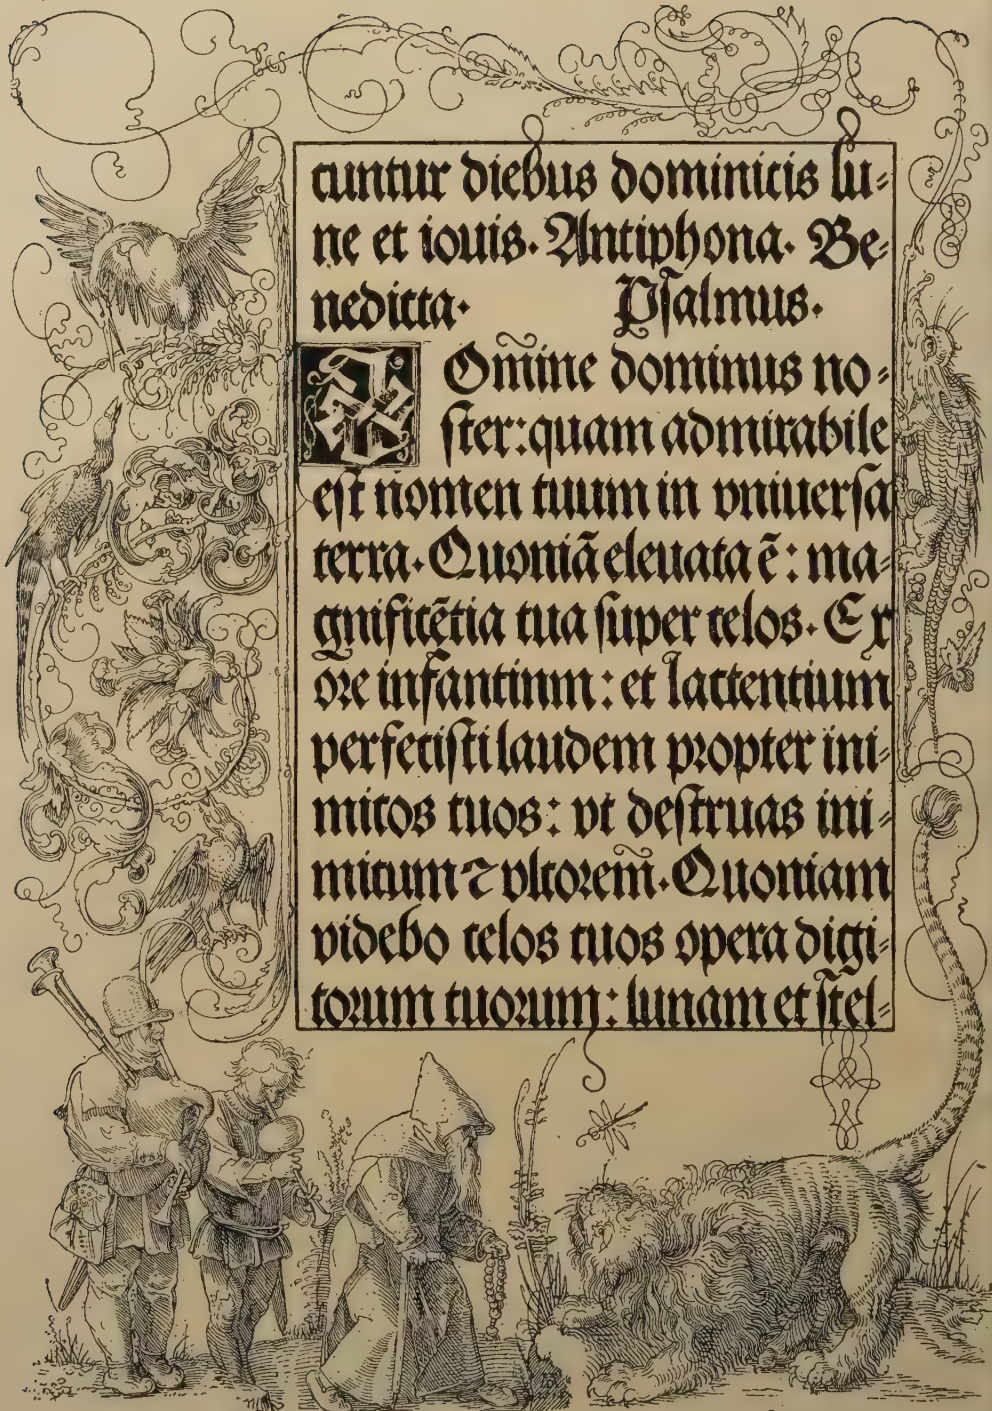 cuntur diebus dominicis lu⸗
ne et iouis. Antiphona. Be⸗
nedicta. Psalmus.
Domine dominus no⸗
ſter: quam admirabile
eſt nomen tuum in vniuerſa
terra. Quoniã eleuata ẽ: ma⸗
gnificẽtia tua ſuper celos. Ex
ore infantinm: et lactentium
perfeciſti laudem propter ini⸗
micos tuos: vt deſtruas ini⸗
micum ⁊ vltorem̃. Quoniam
videbo celos tuos opera digi⸗
torum tuorum: lunam et ſtel⸗